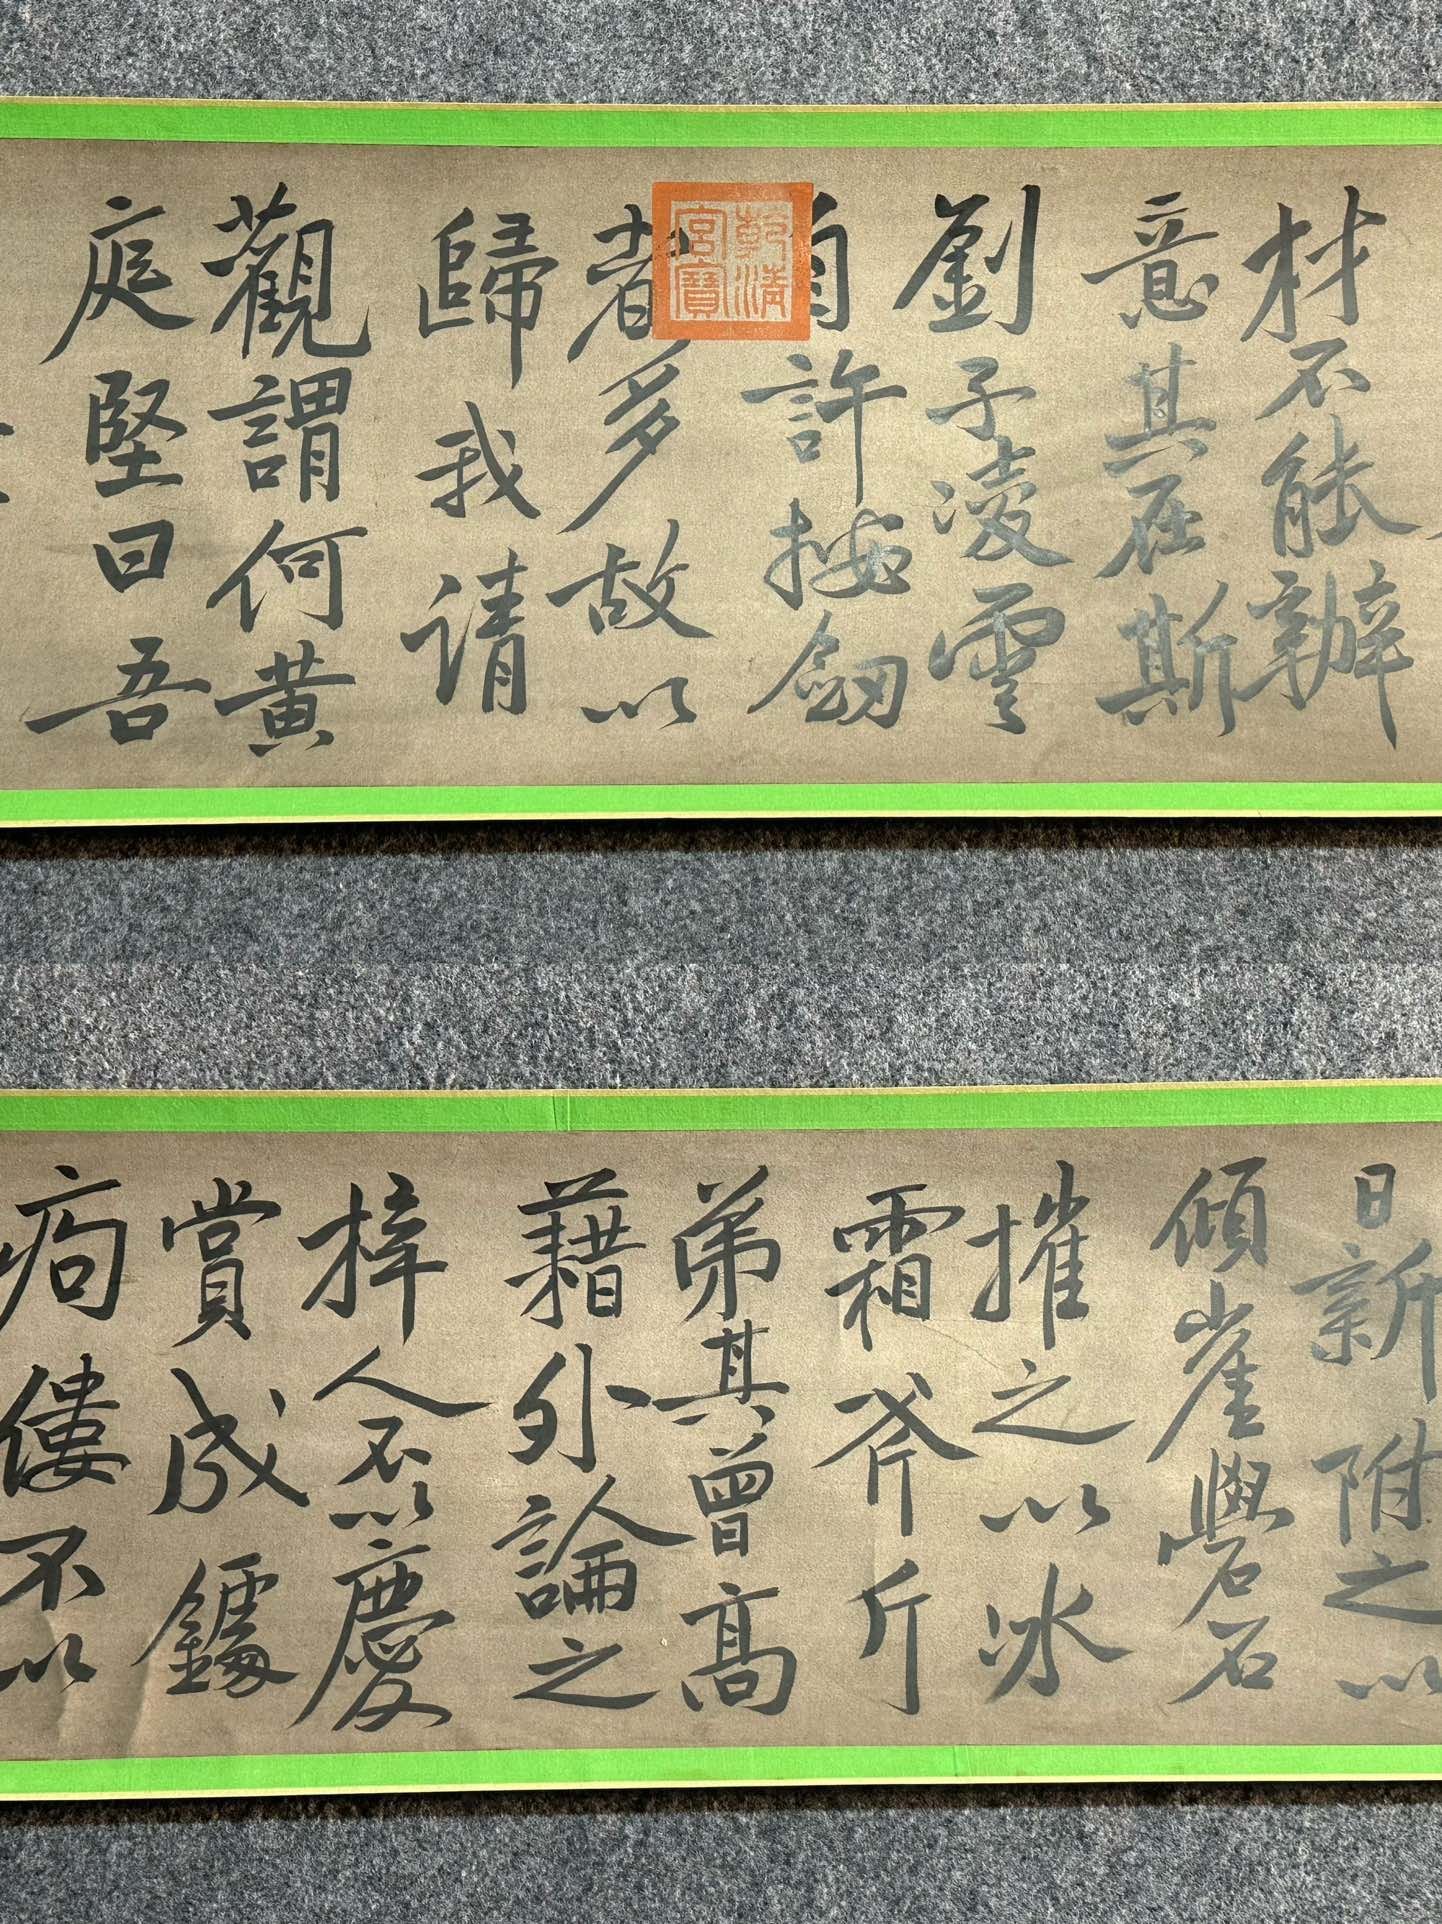 材不能辦
意其在斯
劉子凌雲
自許按劔
者多故以
歸我請
觀謂何黃
庭堅曰吾
乾清
宮寶
日新附之以
傾崖礐石
摧之以冰
霜斧斤
弟其曾高
藉外論之
梓人不以慶
賞成鐻
痀僂不以